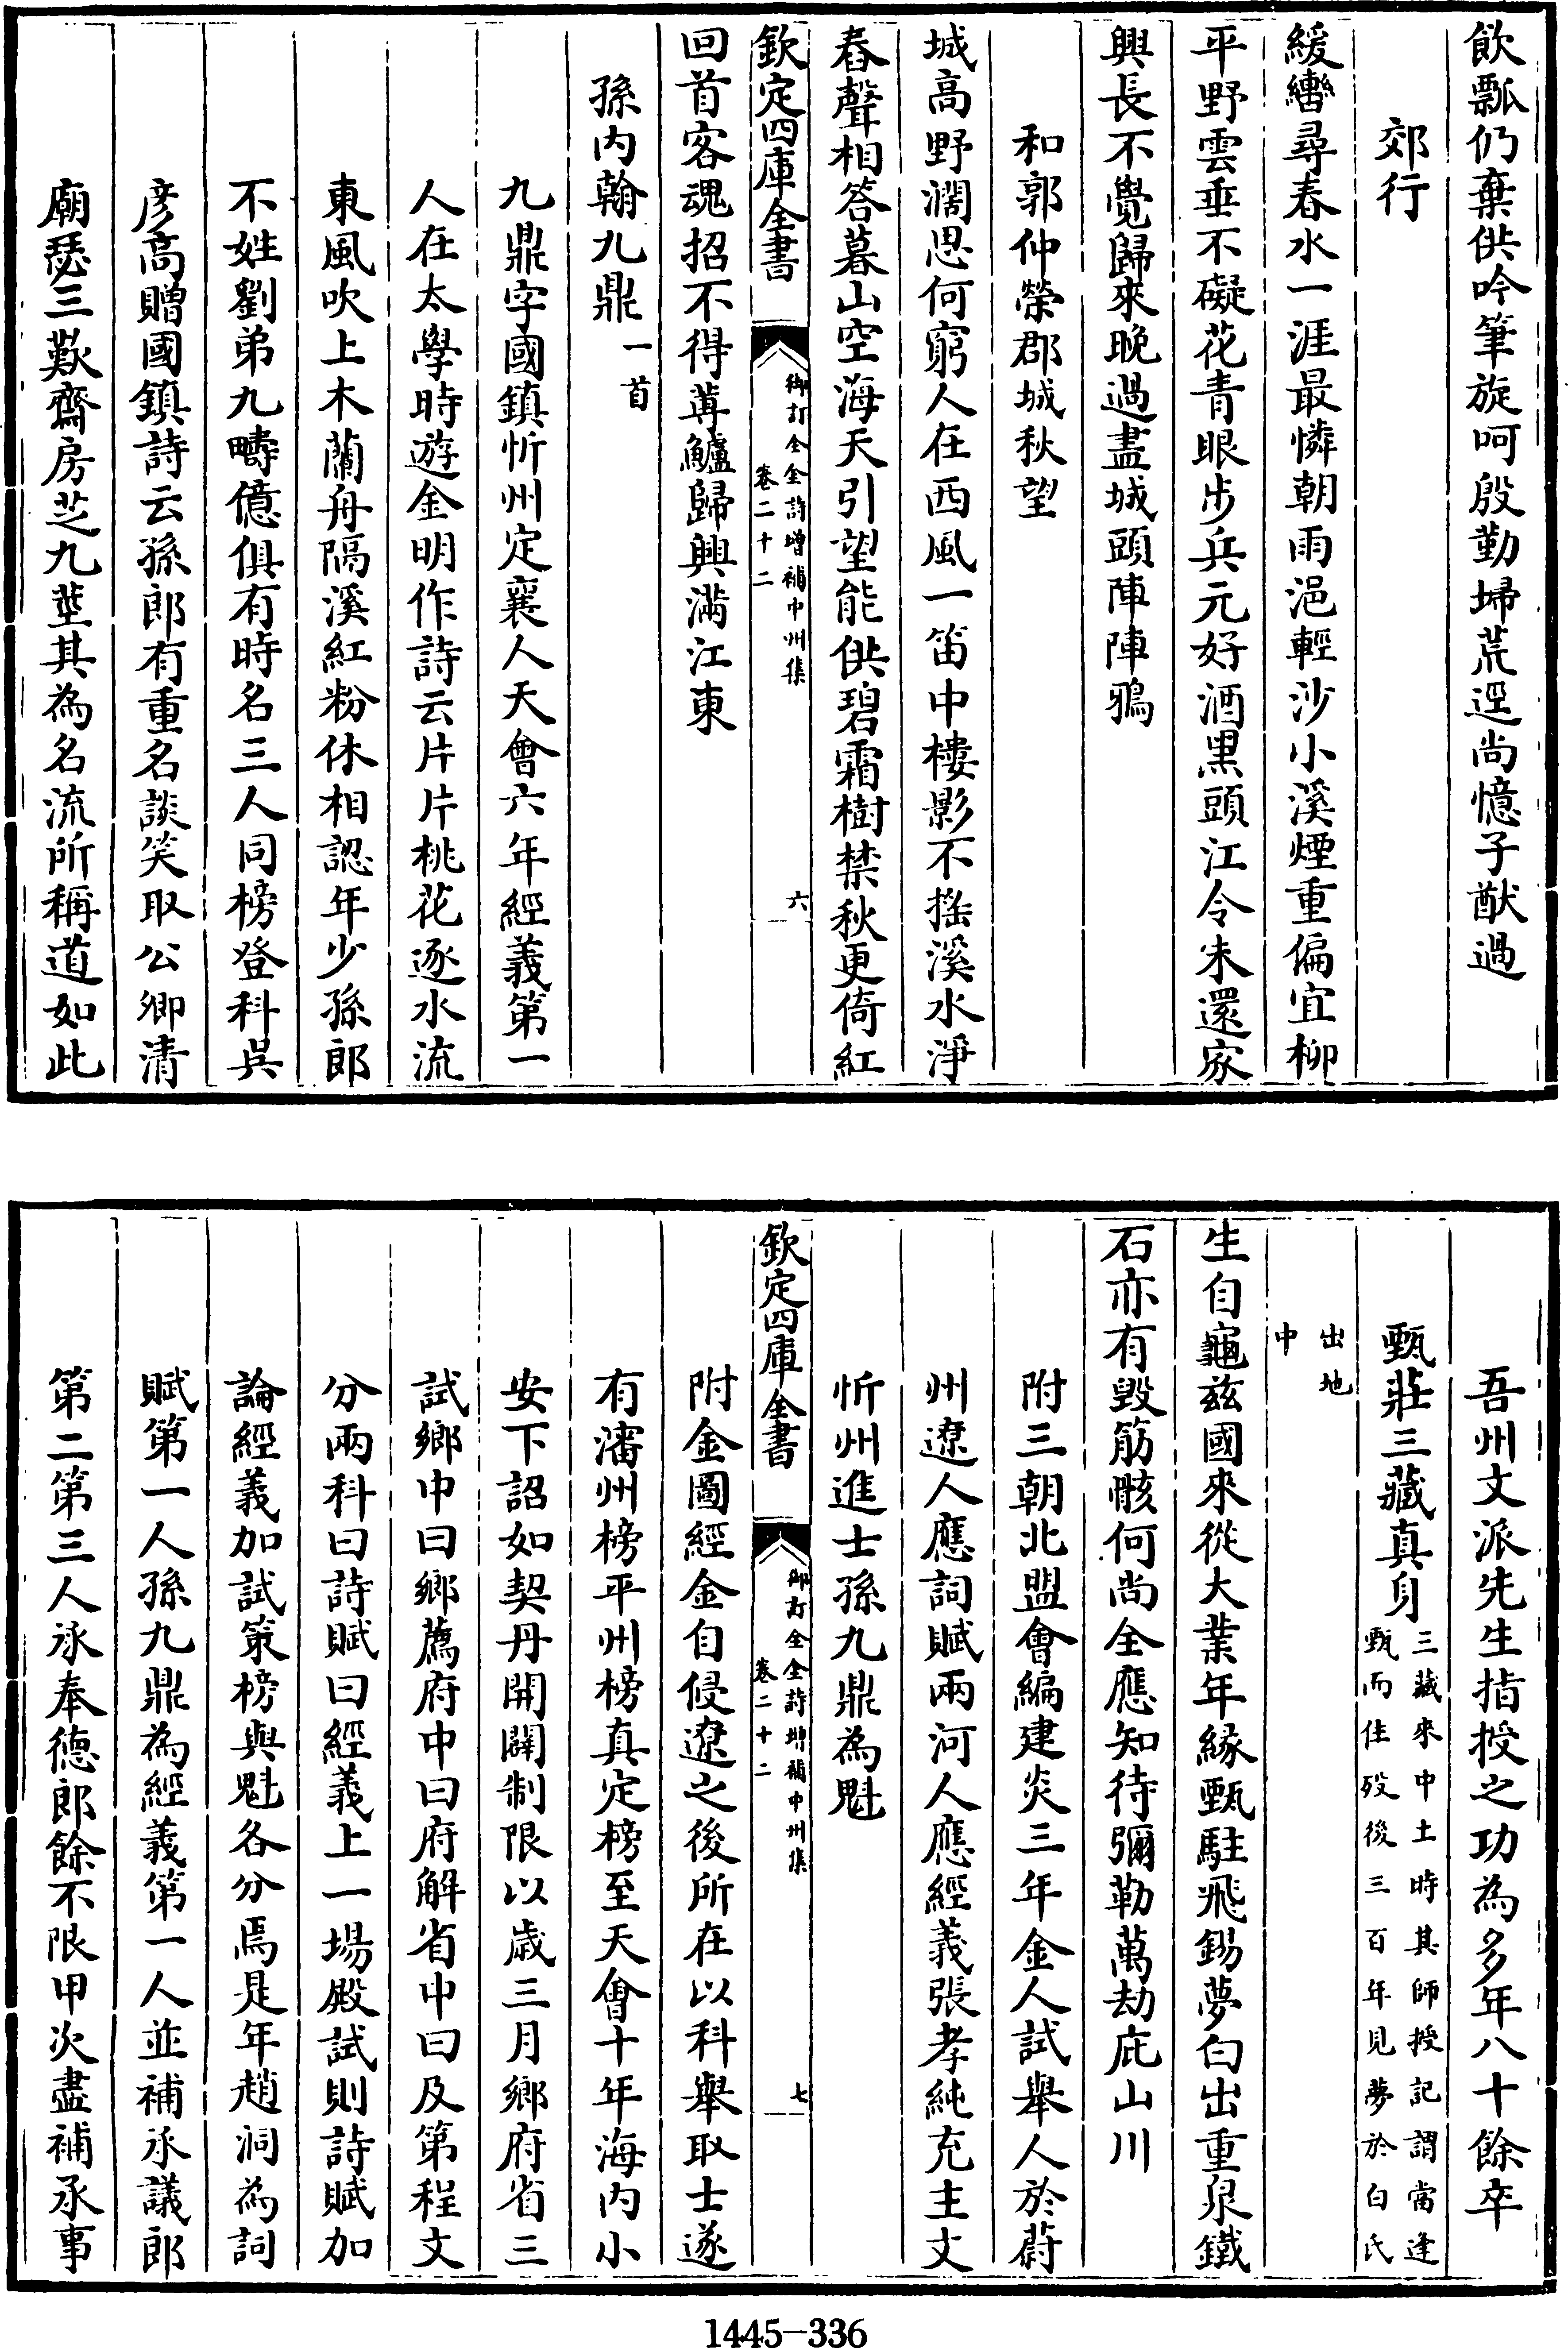 飲瓢仍棄供吟筆旋呵殷勤埽荒逕尚憶子猷過
郊行
緩轡尋春水一涯最憐朝雨浥輕沙小溪煙重偏宜柳
平野雲垂不礙花青眼步兵元好酒黑頭江令未還家
興長不覺歸來晚過盡城頭陣陣鴉
和郭仲榮郡城秋望
城高野濶思何窮人在西風一笛中樓影不搖溪水淨
舂聲相答暮山空海天引望能供碧霜樹禁秋更倚紅
欽定四庫全書
御訂全金詩增補中州集
卷二十二
六
回首客魂招不得蓴鱸歸興滿江東
孫內翰九鼎一首
九鼎字國鎮忻州定襄人天會六年經義第一
人在太學時遊金明作詩云片片桃花逐水流
東風吹上木蘭舟隔溪紅粉休相認年少孫郎
不姓劉弟九疇億俱有時名三人同榜登科吳
彥高贈國鎮詩云孫郎有重名談笑取公卿清
廟瑟三歎齋房芝九莖其為名流所稱道如此
吾州文派先生指授之功為多年八十餘卒
甄莊三藏真身三藏來中土時其師授記謂當逢
甄而住歿後三百年見夢於白氏
出地
中
生自龜兹國來從大業年緣甄駐飛錫夢白出重泉鐵
石亦有毀筋骸何尚全應知待彌勒萬劫庇山川
附三朝北盟會編建炎三年金人試舉人於蔚
州遼人應詞賦兩河人應經義張孝純充主文
忻州進士孫九鼎為魁
欽定四庫全書
御訂全金詩增補中州集
卷二十二
七
附金圖經金自侵遼之後所在以科舉取士遂
有瀋州榜平州榜真定榜至天會十年海內小
安下詔如契丹開闢制限以歲三月鄉府省三
試鄉中曰鄉薦府中曰府解省中曰及第程文
分兩科曰詩賦曰經義上一場殿試則詩賦加
論經義加試策榜與魁各分焉是年趙洞為詞
賦第一人孫九鼎為經義第一人並補承議郎
第二第三人承奉德郎餘不限甲次盡補承事
1445-336